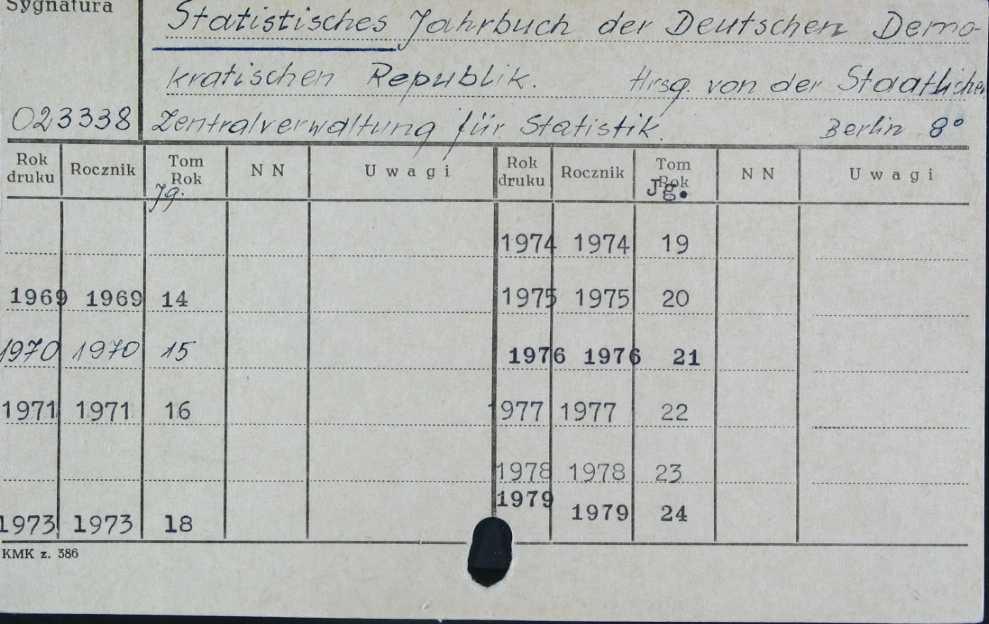 Sygnatura
Statistisches Jahrbuch der Deutschen Demo-
kratischen Republik. Hrsg. von der Staatlichen
023338 Zentralverwaltung für Statistik. Berlin 8°
Rok druku Rocznik Tom Rok Jg. N N Uwagi Rok druku Rocznik Tom Rok Jg. N N Uwagi
1974 1974 19
1969 1969 14 1975 1975 20
1970 1970 15 1976 1976 21
1971 1971 16 1977 1977 22
1978 1978 23
1973 1973 18 1979 1979 24
KMK z. 386